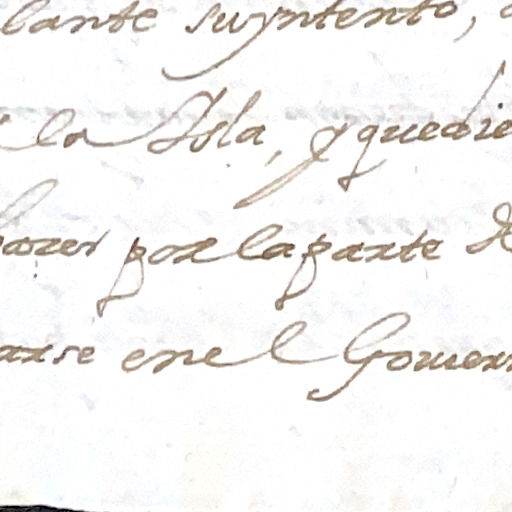 lante suyntento,
la Isla, y quedire
hazer por la parte de
arse en el Gouern